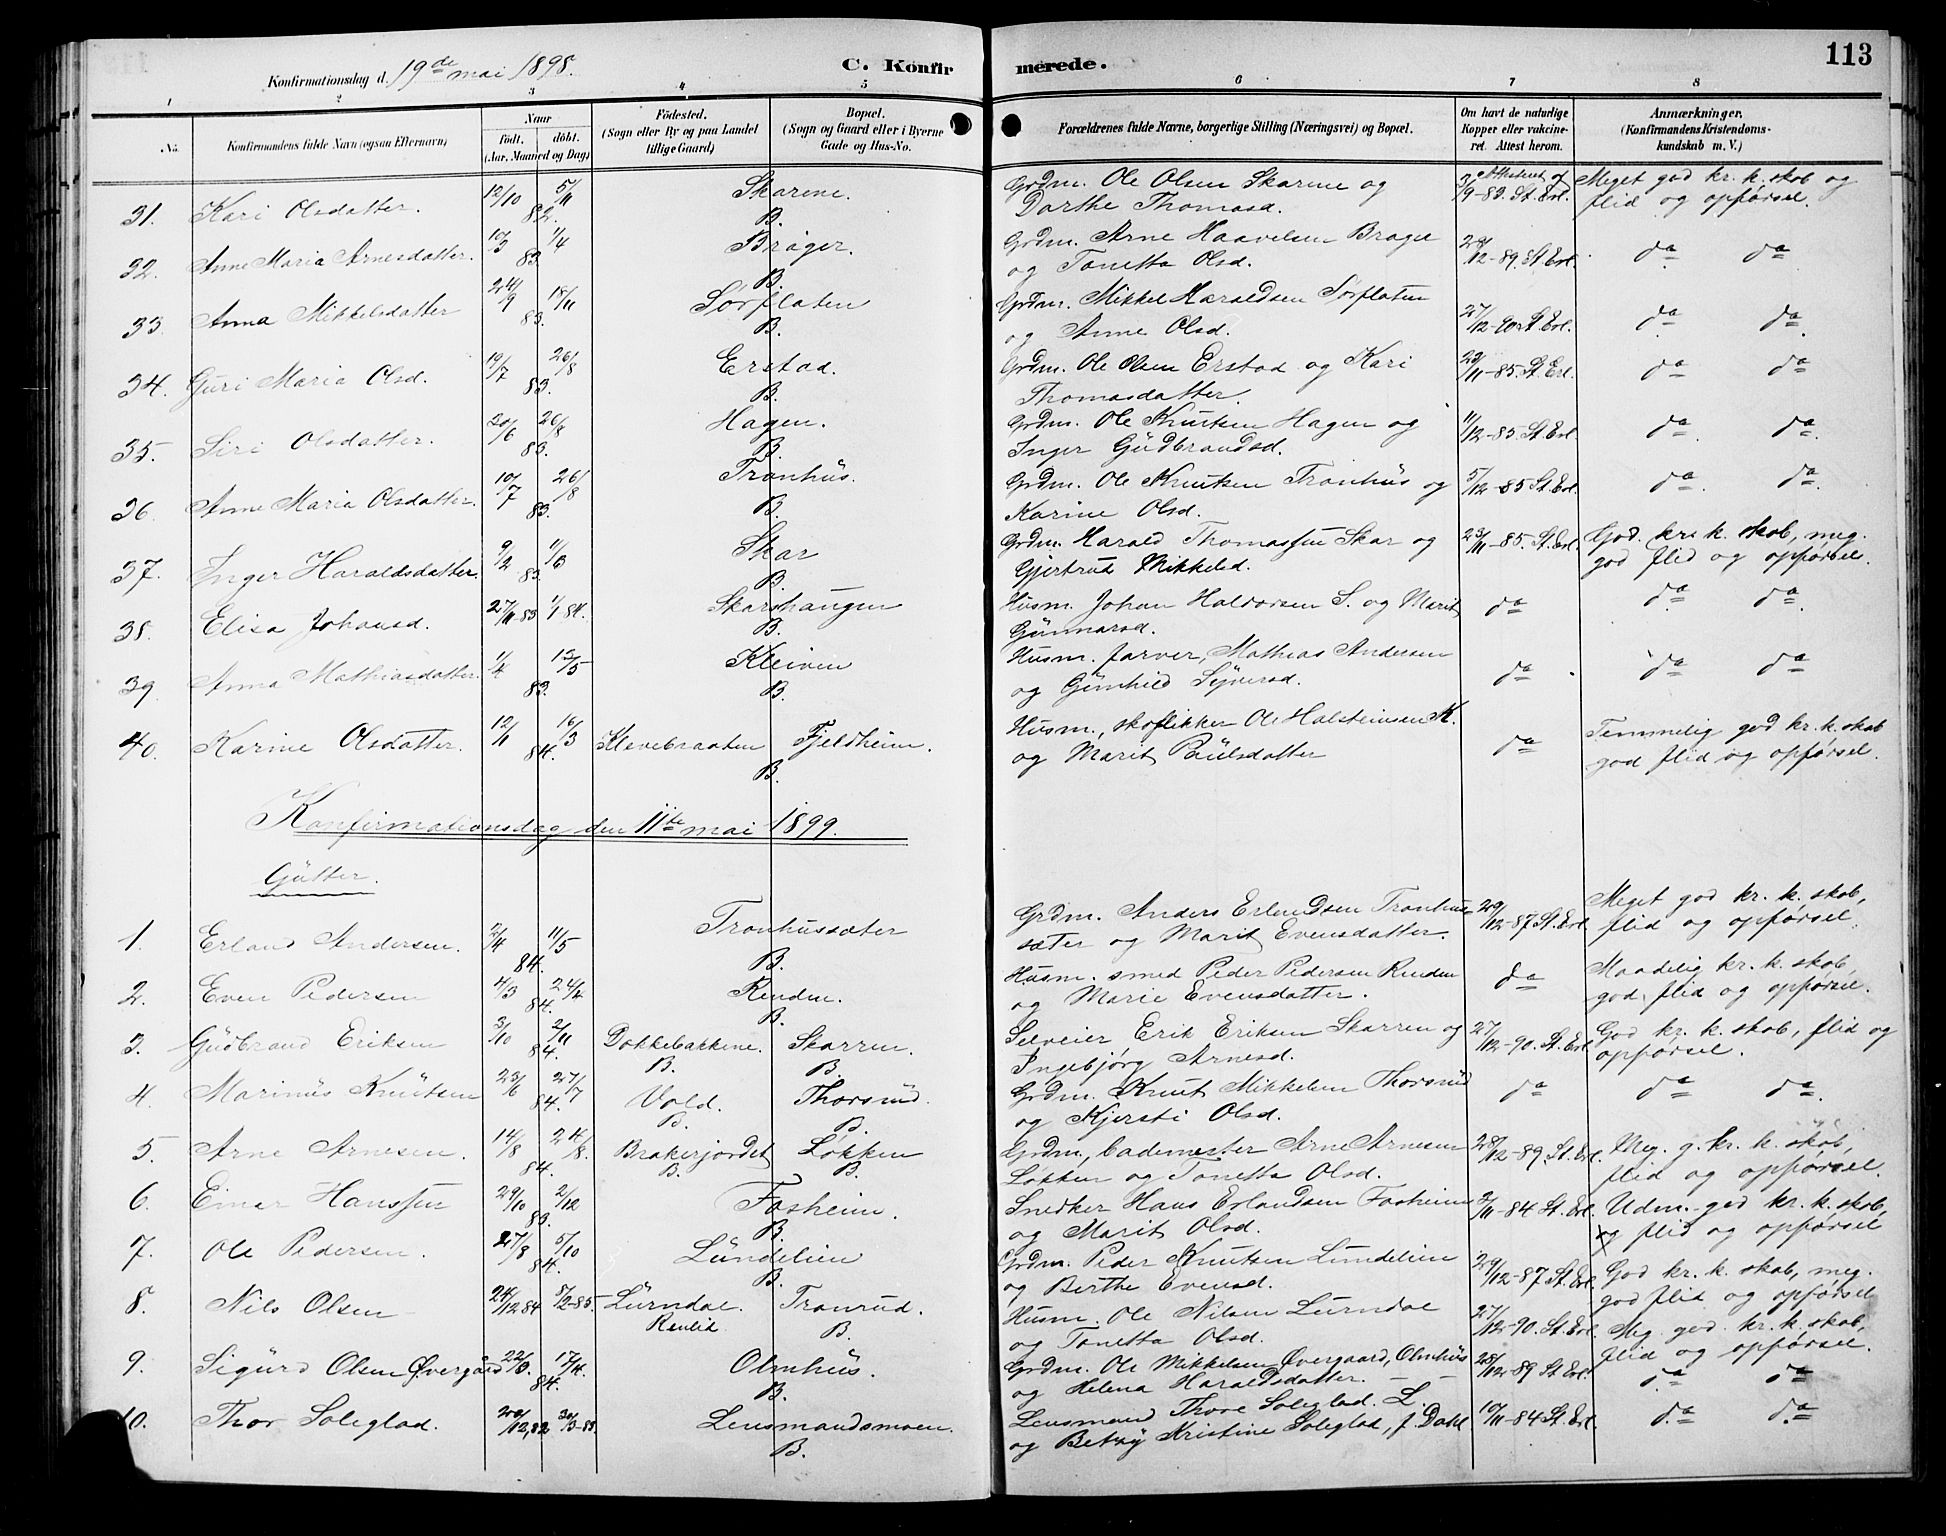 Konfirmationsdag d. 19de mai 1898. C. Konfirmerede. 113
1 2 3 4 5 6 7 8
No. Konfirmandens fulde Navn (ogsaa Efternavn) Naar født, døbt. (Aar, Maaned og Dag) Fødested. (Sogn eller By og paa Landet tillige Gaard) Bopæl. (Sogn og Gaard eller i Byerne Gade og Hus-No. Forældrenes fulde Navne, borgerlige Stilling (Næringsvei) og Bopæl. Om havt de naturlige Kopper eller vakcineret. Attest herom. Anmærkninger. (Konfirmandens Kristendomskundskab m. V.)
31. Kari Olsdatter. 12/10 5/11 82. Skarene. B. Grdm. Ole Olsen Skarene og Dorthe Thomasd. Attesteret af 9-83. St. Erl. Meget god kr. k. skab og flid og opførsel.
32. Anne Maria Arnesdatter. 10/3 1/4 83. Brager. B. Grdm. Arne Haavelsen Brager og Tonetta Olsd. 28/12-89. St. Erl. da da
33. Anna Mikkelsdatter 24/9 18/11 83. Sørflaten B. Grdm. Mikkel Haraldsen Sørflaten og Anne Olsd. 27/12-90. St. Erl. da da
34. Guri Maria Olsd. 19/7 26/8 83. Erstad. B. Grdm. Ole Olsen Erstad og Kari Thomasdatter. 23/11-85. St. Erl. da da
35. Siri Olsdatter. 20/6 26/8 83. Hagen. B. Grdm. Ole Knutsen Hagen og Inger Gudbrandsd. 11/12-85. St. Erl. da da
36. Anne Maria Olsdatter. 10/7 26/8 83. Tronhus. B. Grdm. Ole Knutsen Tronhus og Karine Olsd. 5/12-85 St. Erl. da da
37. Inger Haraldsdatter. 9/2 11/3 83. Skar B. Grdm. Harald Thomassen Skar og Gjertrud Mikkelsd. 23/11-85. St. Erl. God. kr. k. skab, meg. god flid og opførsel.
38. Elisa Johansd. 27/11-83 1/1 84. Skarshaugen B. Husm. Johan Haldorsen S. og Marit Gunnarsd. da da da
39. Anna Mathiasdatter. 1/4 13/5 83. Kleiven B. Husm. farver, Mathias Andersen og Gunhild Syversd. da da da
40. Karine Olsdatter. 12/1 16/3 84. Klevebraaten Fjeldheim. B. Husm., skoflikker Ole Halsteinsen K. og Marit Paulsdatter da Temmelig god kr. k. skab god flid og opførsel.
Konfirmationsdag den 11te mai 1899.
Gutter.
1. Erland Andersen. 2/4 11/5 84. Tronhussæter B. Grdm. Anders Erlendsen Tronhussæter og Marit Evensdatter. 29/12-87 St. Erl. Meget god kr. k. skab, flid og opførsel.
2. Even Pedersen 4/3 24/4 84. Renden. B. Husm. smed Peder Pedersen Renden og Marie Evensdatter. da Maadelig kr. k. skab, god flid og opførsel.
3. Gudbrand Eriksen 3/10 2/11 84. Dokkebakkene. B. Skarren. B. Selveier Erik Eriksen Skarren og Ingebjørg Arnesd. 27/12-90. St. Erl. God kr. k. skab, flid og opførsel.
4. Marinus Knutsen 23/6 27/7 84. Vold. B. Thorsrud. B. Grdm. Knut Mikkelsen Thorsrud og Kjersti Olsd. da da da
5. Arne Arnesen. 14/8 24/8. 84. Brakerjordet B. Løkken B. Grdm., bademester Arne Arnesen Løkken og Tonetta Olsd. 28/12-89. St. Erl. Meg. g. kr. k. skab, flid og opførsel.
6. Einar Hanssen 29/10 2/12 83. Fosheim. B. Snedker Hans Erlandsen Fosheim og Marit Olsd. 2/11-84 St. Erl. Udm. god kr. k. skab, og flid og opførsel
7. Ole Pedersen. 27/8 5/10 84. Lundelien B. Grdm. Peder Knutsen Lundelien og Berthe Evensd. 29/12-87 St. Erl. God kr. k. skab, meg. god flid og opførsel
8. Nils Olsen 24/12 84 5/2-85. Lurndal. Renlid Tronrud. B. Husm. Ole Nilsen Lurndal og Tonetta Olsd. 27/12-90. St. Erl. Meg. god. kr. k. skab, flid og opførsel.
9. Sigurd Olsen Øvergård 22/3. 17/4. 84. Olmhus. B. Grdm. Ole Mikkelsen Øvergaard, Olmhus og Helena Haraldsdatter. 28/12-89 St. Erl. da da
10. Thor Soleglad. 12,82 30/3-83. Lensmandsmoen. B. Lensmand Thore Soleglad. L. og Betzy Kristine Soleglad, f. Dahl 10/11-84 St. Erl. da da